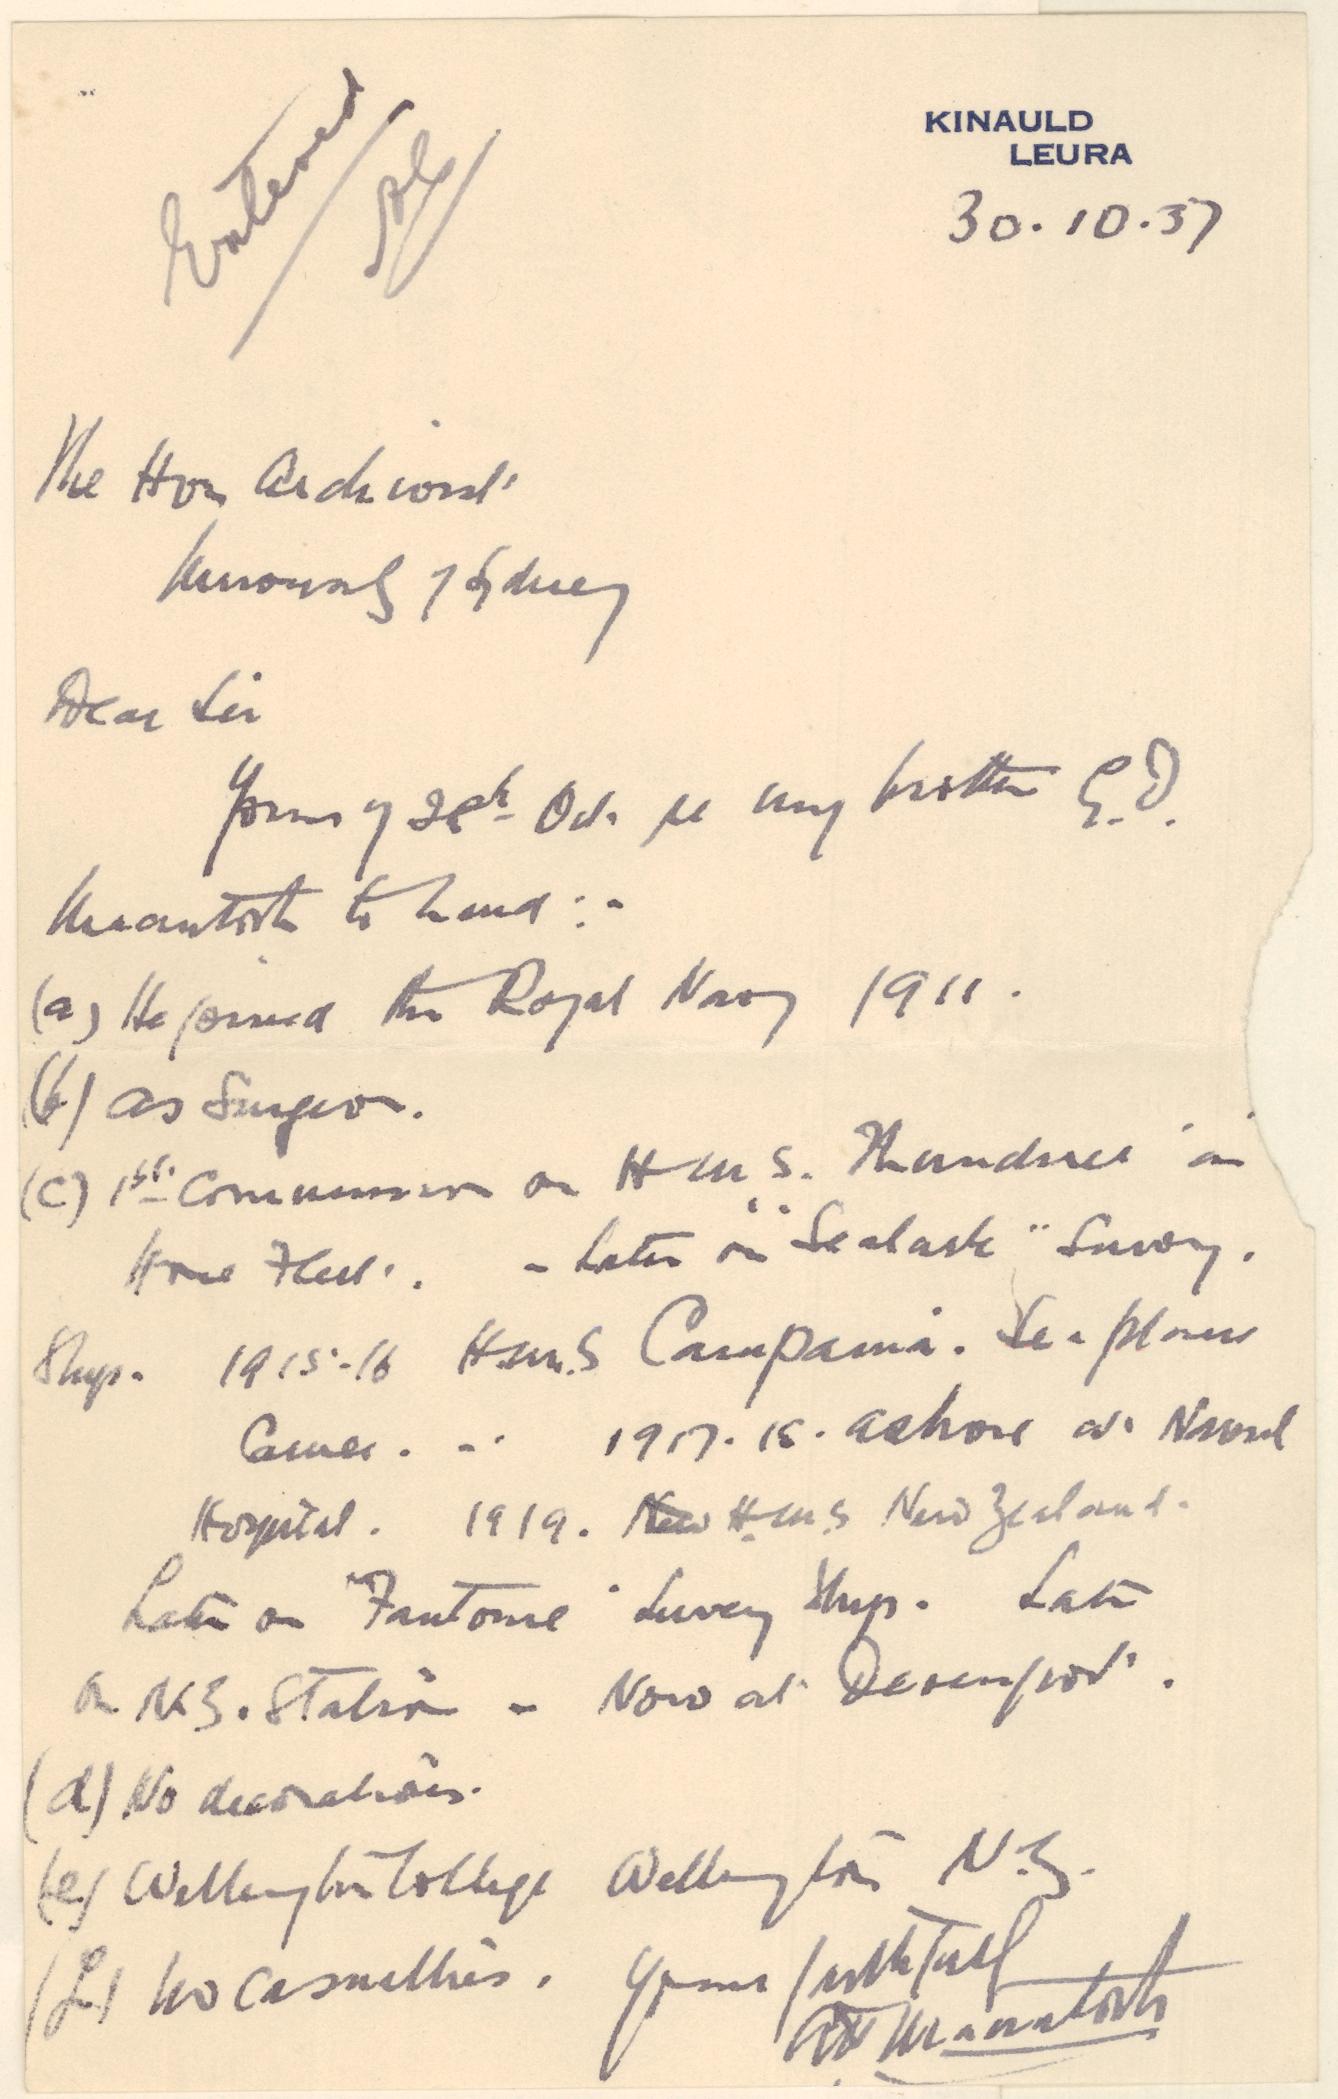 Entered
KINAULD
LEURA
30.10.37
The Hon Archivist
University of Sydney
Dear Sir
Yours of 28th Oct. re my brother G.D.
Macintosh to hand :-
(a) He joined the Royal Navy 1911.
(b) as Surgeon.
(c) 1st Commission on H.M.S. Thunderer in
Home Fleet. - Later on "Sealark" Survey.
Ship. 1915-16 H.M.S Campania. Sea plane
Carrier. - 1917.18. ashore at Naval
Hospital. 1919. New H.M.S New Zealand.
Later on "Fantome" Survey Ship. Later
on N.Z. Station - Now at Devenport.
(d) No decorations.
(e) Wellington College Wellington N.Z.
(f) No casualties. Yours faithfully
Macintosh